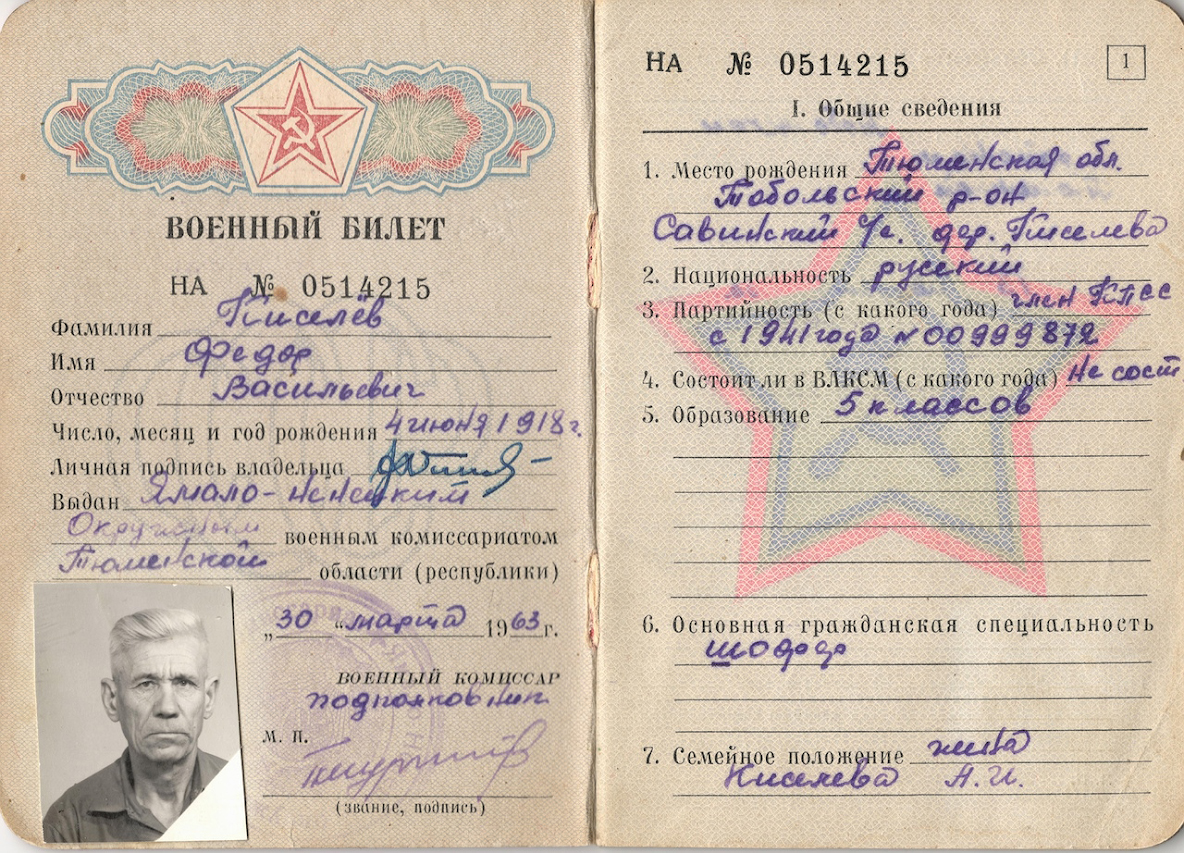 ВОЕННЫЙ БИЛЕТ
НА № 0514215
Фамилия Киселёв
Имя Федор
Отчество Васильевич
Число, месяц и год рождения 4 июня 1918 г.
Личная подпись владельца
Выдан Ямало-Ненецким
Окружным военным комиссариатом
Тюменской области (республики)
„30 “ марта 1963 г.
ВОЕННЫЙ КОМИССАР
подполковник
М. П.
(звание, подпись)
НА № 0514215
1
I. Общие сведения
1. Место рождения Тюменская обл.
Тобольский р-он
Савинский с/с. дер. Киселева
2. Национальность русский
3. Партийность (с какого года) член КПСС
с 1941 года № 00999872
4. Состоит ли в ВЛКСМ (с какого года) Не сост.
5. Образование 5 классов
6. Основная гражданская специальность
шофер
7. Семейное положение жена
Киселева А. И.